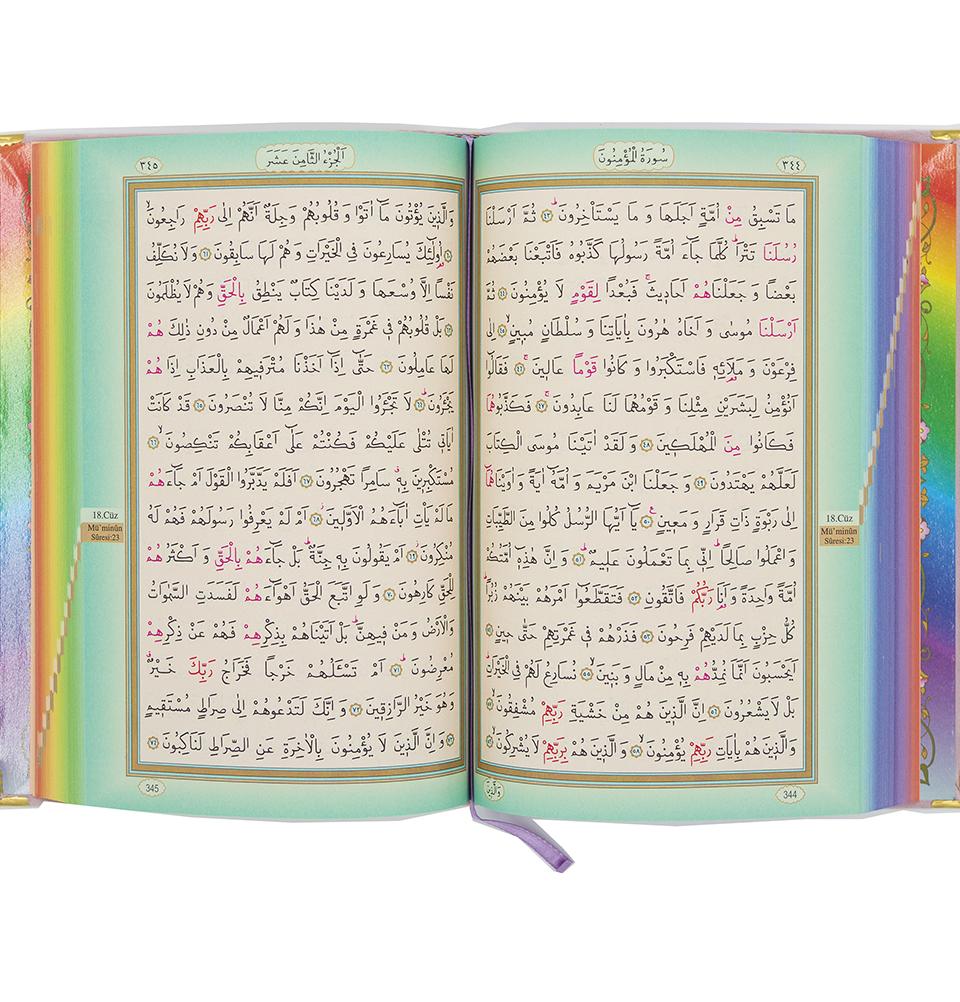 ٣٤٤
سُورَةُ الْمُؤْمِنُونَ
مَا تَسْبِقُ مِنْ اُمَّةٍ اَجَلَهَا وَ مَا يَسْتَاْخِرُونَ ﴿٤٣﴾ ثُمَّ اَرْسَلْنَا
رُسُلَنَا تَتْرَاۜ كُلَّمَا جَٓاءَ اُمَّةً رَسُولُهَا كَذَّبُوهُ فَاَتْبَعْنَا بَعْضَهُمْ
بَعْضًا وَ جَعَلْنَاهُمْ اَحَاد۪يثَۚ فَبُعْدًا لِقَوْمٍ لَا يُؤْمِنُونَ ﴿٤٤﴾ ثُمَّ
اَرْسَلْنَا مُوسٰى وَ اَخَاهُ هٰرُونَ بِاٰيَاتِنَا وَ سُلْطَانٍ مُب۪ينٍۙ ﴿٤٥﴾ اِلٰى
فِرْعَوْنَ وَ مَلَا۬ئِه۪ فَاسْتَكْبَرُوا وَ كَانُوا قَوْمًا عَال۪ينَۚ ﴿٤٦﴾ فَقَالُٓوا
اَنُؤْمِنُ لِبَشَرَيْنِ مِثْلِنَا وَ قَوْمُهُمَا لَنَا عَابِدُونَۚ ﴿٤٧﴾ فَكَذَّبُوهُمَا
فَكَانُوا مِنَ الْمُهْلَك۪ينَ ﴿٤٨﴾ وَ لَقَدْ اٰتَيْنَا مُوسَى الْكِتَابَ
لَعَلَّهُمْ يَهْتَدُونَ ﴿٤٩﴾ وَ جَعَلْنَا ابْنَ مَرْيَمَ وَ اُمَّهُٓ اٰيَةً وَ اٰوَيْنَاهُمَٓا
اِلٰى رَبْوَةٍ ذَاتِ قَرَارٍ وَ مَع۪ينٍ۟ ﴿٥٠﴾ يَٓا اَيُّهَا الرُّسُلُ كُلُوا مِنَ الطَّيِّبَاتِ
وَ اعْمَلُوا صَالِحًاۜ اِنّ۪ي بِمَا تَعْمَلُونَ عَل۪يمٌۜ ﴿٥١﴾ وَ اِنَّ هٰذِه۪ٓ اُمَّتُكُمْ
اُمَّةً وَاحِدَةً وَ اَنَا۬ رَبُّكُمْ فَاتَّقُونِ ﴿٥٢﴾ فَتَقَطَّعُٓوا اَمْرَهُمْ بَيْنَهُمْ زُبُرًاۜ
كُلُّ حِزْبٍ بِمَا لَدَيْهِمْ فَرِحُونَ ﴿٥٣﴾ فَذَرْهُمْ ف۪ي غَمْرَتِهِمْ حَتّٰى ح۪ينٍ ﴿٥٤﴾
اَيَحْسَبُونَ اَنَّمَا نُمِدُّهُمْ بِه۪ مِنْ مَالٍ وَ بَن۪ينَۙ ﴿٥٥﴾ نُسَارِعُ لَهُمْ فِي الْخَيْرَاتِۜ
بَلْ لَا يَشْعُرُونَ ﴿٥٦﴾ اِنَّ الَّذ۪ينَ هُمْ مِنْ خَشْيَةِ رَبِّهِمْ مُشْفِقُونَۙ ﴿٥٧﴾
وَ الَّذ۪ينَ هُمْ بِاٰيَاتِ رَبِّهِمْ يُؤْمِنُونَۙ ﴿٥٨﴾ وَ الَّذ۪ينَ هُمْ بِرَبِّهِمْ لَا يُشْرِكُونَۙ ﴿٥٩﴾
وَالَّذ۪ينَ
344
18.Cüz
Mü'minûn
Sûresi:23
اَلْجُزْءُ الثَّامِنَ عَشَرَ
٣٤٥
وَالَّذ۪ينَ يُؤْتُونَ مَٓا اٰتَوْا وَ قُلُوبُهُمْ وَجِلَةٌ اَنَّهُمْ اِلٰى رَبِّهِمْ رَاجِعُونَۙ
﴿٦٠﴾ اُو۬لٰٓئِكَ يُسَارِعُونَ فِي الْخَيْرَاتِ وَ هُمْ لَهَا سَابِقُونَ ﴿٦١﴾ وَ لَا نُكَلِّفُ
نَفْسًا اِلَّا وُسْعَهَا وَ لَدَيْنَا كِتَابٌ يَنْطِقُ بِالْحَقِّ وَ هُمْ لَا يُظْلَمُونَ
﴿٦٢﴾ بَلْ قُلُوبُهُمْ ف۪ي غَمْرَةٍ مِنْ هٰذَا وَ لَهُمْ اَعْمَالٌ مِنْ دُونِ ذٰلِكَ هُمْ
لَهَا عَامِلُونَ ﴿٦٣﴾ حَتّٰٓى اِذَٓا اَخَذْنَا مُتْرَف۪يهِمْ بِالْعَذَابِ اِذَا هُمْ
يَجْـَٔرُونَۜ ﴿٦٤﴾ لَا تَجْـَٔرُوا الْيَوْمَ اِنَّكُمْ مِنَّا لَا تُنْصَرُونَ ﴿٦٥﴾ قَدْ كَانَتْ
اٰيَات۪ي تُتْلٰى عَلَيْكُمْ فَكُنْتُمْ عَلٰٓى اَعْقَابِكُمْ تَنْكِصُونَۙ ﴿٦٦﴾
مُسْتَكْبِر۪ينَ بِه۪ۗ سَامِرًا تَهْجُرُونَ ﴿٦٧﴾ اَفَلَمْ يَدَّبَّرُوا الْقَوْلَ اَمْ جَٓاءَهُمْ
مَا لَمْ يَأْتِ اٰبَٓاءَهُمُ الْاَوَّل۪ينَۘ ﴿٦٨﴾ اَمْ لَمْ يَعْرِفُوا رَسُولَهُمْ فَهُمْ لَهُ
مُنْكِرُونَۘ ﴿٦٩﴾ اَمْ يَقُولُونَ بِه۪ جِنَّةٌۜ بَلْ جَٓاءَهُمْ بِالْحَقِّ وَ اَكْثَرُهُمْ
لِلْحَقِّ كَارِهُونَ ﴿٧٠﴾ وَ لَوِ اتَّبَعَ الْحَقُّ اَهْوَٓاءَهُمْ لَفَسَدَتِ السَّمٰوَاتُ
وَالْاَرْضُ وَ مَنْ ف۪يهِنَّۜ بَلْ اَتَيْنَاهُمْ بِذِكْرِهِمْ فَهُمْ عَنْ ذِكْرِهِمْ
مُعْرِضُونَۜ ﴿٧١﴾ اَمْ تَسْـَٔلُهُمْ خَرْجًا فَخَرَاجُ رَبِّكَ خَيْرٌۗ
وَ هُوَ خَيْرُ الرَّازِق۪ينَ ﴿٧٢﴾ وَ اِنَّكَ لَتَدْعُوهُمْ اِلٰى صِرَاطٍ مُسْتَق۪يمٍ
﴿٧٣﴾ وَ اِنَّ الَّذ۪ينَ لَا يُؤْمِنُونَ بِالْاٰخِرَةِ عَنِ الصِّرَاطِ لَنَاكِبُونَۙ ﴿٧٤﴾
345
18.Cüz
Mü'minûn
Sûresi:23